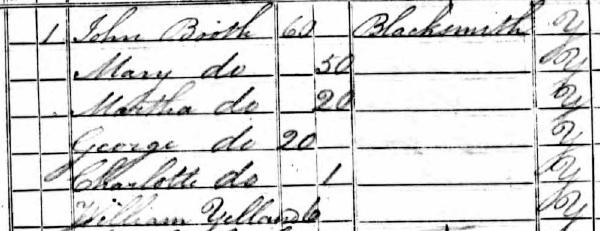 1 John Booth 60 Blacksmith Y
Mary do 50 Y
Martha do 20 Y
George do 20 Y
Charlotte do 1 Y
William Yelland 6 Y